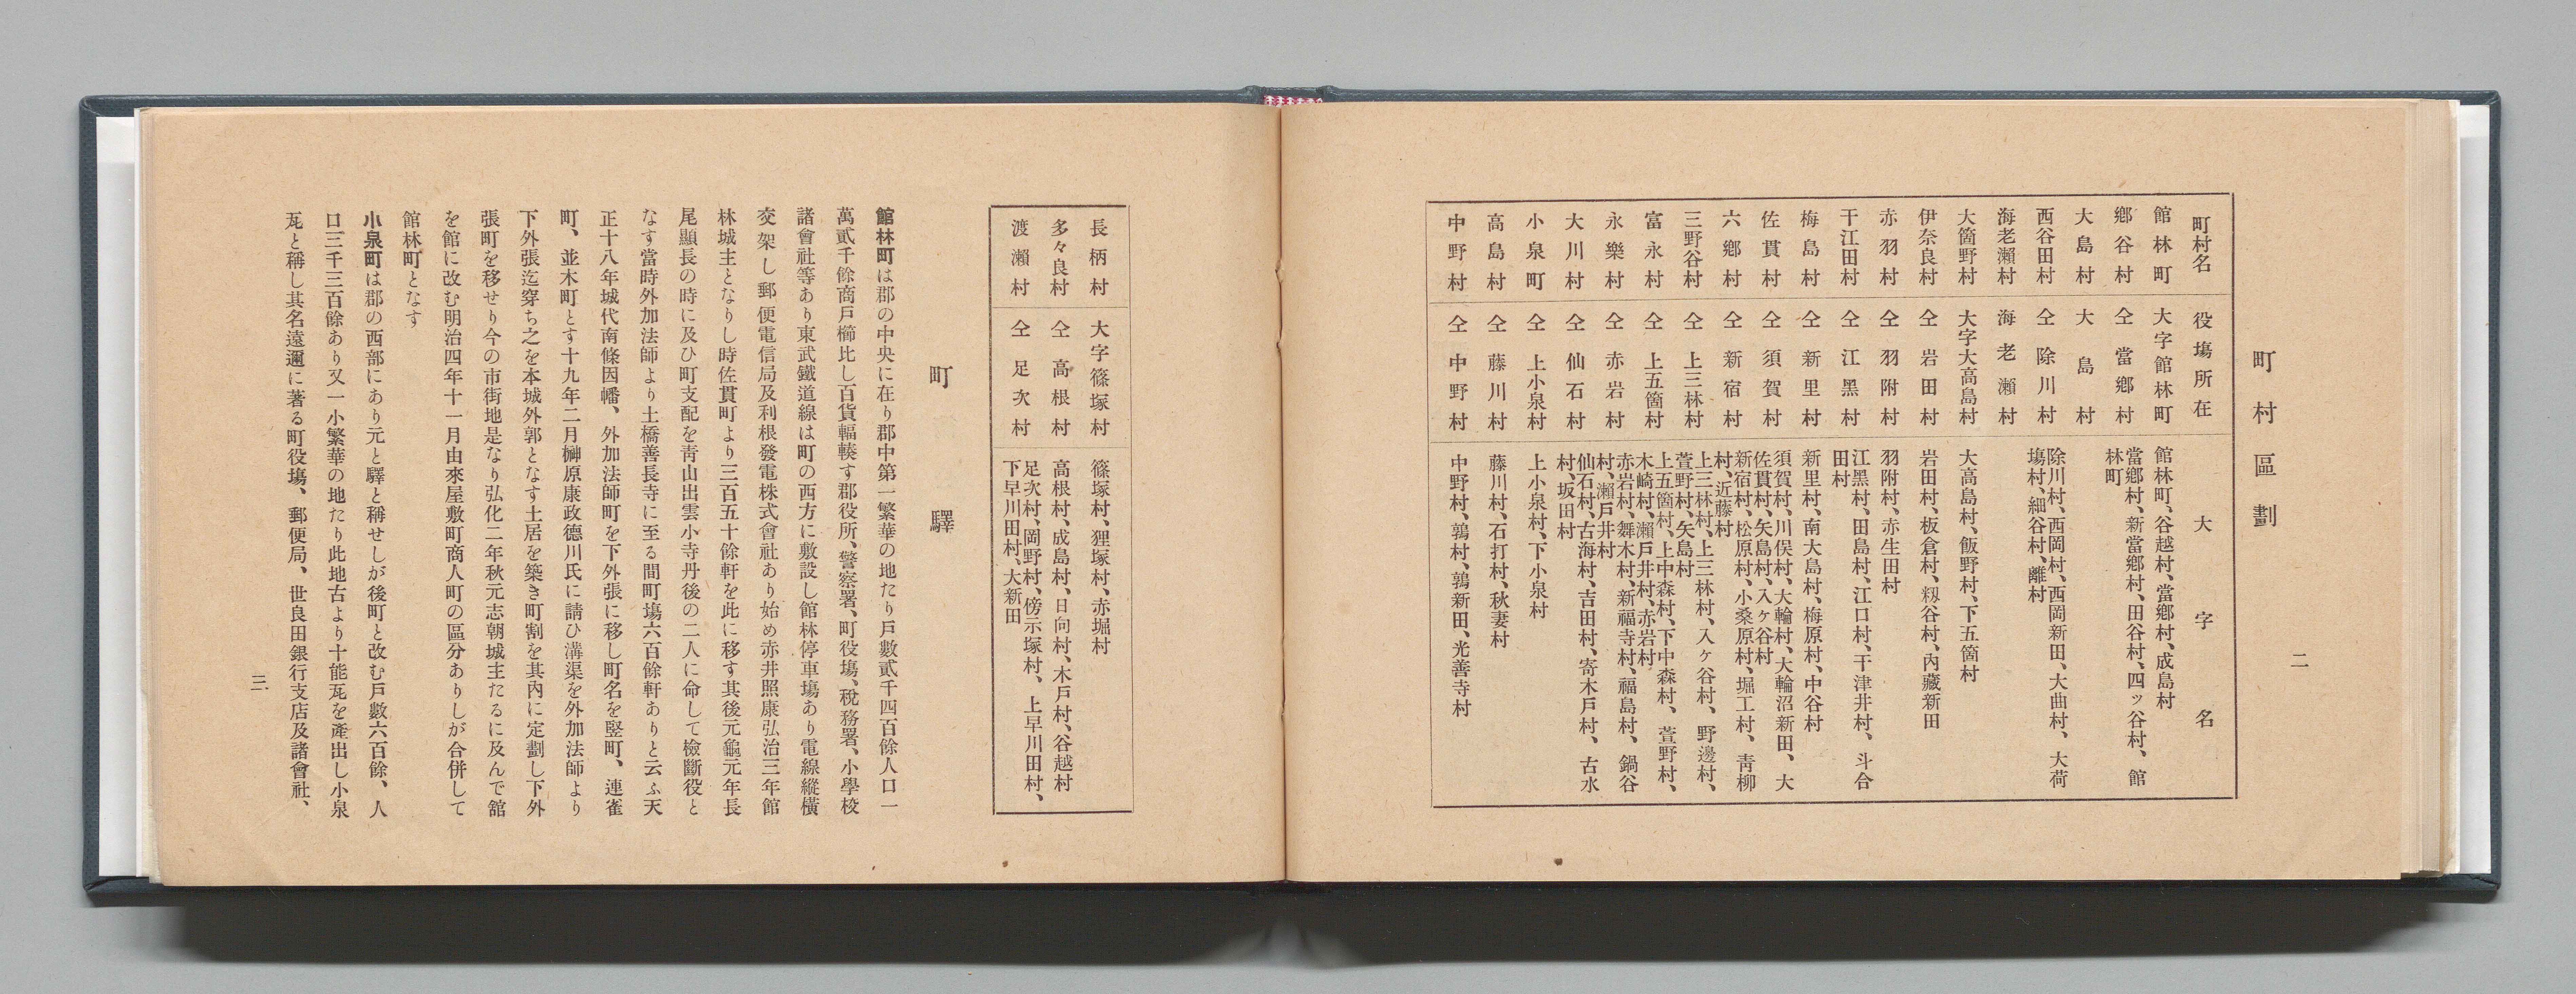 町村區劃
二
町村名 役塲所在 大字名
館林町 大字館林町 館林町、谷越村、當鄕村、成島村
鄕谷村 仝當鄕村 當鄕村、新當鄕村、田谷村、四ッ谷村、館
林町
大島村 大島村
西谷田村 仝除川村 除川村、西岡村、西岡新田、大曲村、大荷
塲村、細谷村、離村
海老瀨村 海老瀨村
大箇野村 大字大高島村 大高島村、飯野村、下五箇村
伊奈良村 仝岩田村 岩田村、板倉村、籾谷村、內藏新田
赤羽村 仝羽附村 羽附村、赤生田村
千江田村 仝江黑村 江黑村、田島村、江口村、千津井村、斗合
田村
梅島村 仝新里村 新里村、南大島村、梅原村、中谷村
佐貫村 仝須賀村 須賀村、川俣村、大輪村、大輪沼新田、大
佐貫村、矢島村、入ヶ谷村
六鄕村 仝新宿村 新宿村、松原村、小桑原村、堀工村、靑柳
村、近藤村
三野谷村 仝上三林村 上三林村、上三林村、入ヶ谷村、野邊村、
萱野村、矢島村
富永村 仝上五箇村 上五箇村、上中森村、下中森村、萱野村、
木崎村、瀨戶井村、赤岩村
永樂村 仝赤岩村 赤岩村、舞木村、新福寺村、福島村、鍋谷
村、瀨戶井村
大川村 仝仙石村 仙石村、古海村、吉田村、寄木戶村、古氷
村、坂田村
小泉町 仝上小泉村 上小泉村、下小泉村
高島村 仝藤川村 藤川村、石打村、秋妻村
中野村 仝中野村 中野村、鶉村、鶉新田、光善寺村
長柄村 大字篠塚村 篠塚村、狸塚村、赤堀村
多々良村 仝高根村 高根村、成島村、日向村、木戶村、谷越村
渡瀨村 仝足次村 足次村、岡野村、傍示塚村、上早川田村、
下早川田村、大新田
町驛
館林町は郡の中央に在り郡中第一繁華の地たり戶數貳千四百餘人口一
萬貳千餘商戶櫛比し百貨輻輳す郡役所、警察署、町役塲、稅務署、小學校
諸會社等あり東武鐵道線は町の西方に敷設し館林停車塲あり電線縱橫
交架し郵便電信局及利根發電株式會社あり始め赤井照康弘治三年館
林城主となりし時佐貫町より三百五十餘軒を此に移す其後元龜元年長
尾顯長の時に及ひ町支配を靑山出雲小寺丹後の二人に命して檢斷役と
なす當時外加法師より土橋善長寺に至る間町塲六百餘軒ありと云ふ天
正十八年城代南條因幡、外加法師町を下外張に移し町名を竪町、連雀
町、並木町とす十九年二月榊原康政德川氏に請ひ溝渠を外加法師より
下外張迄穿ち之を本城外郭となす土居を築き町割を其內に定劃し下外
張町を移せり今の市街地是なり弘化二年秋元志朝城主たるに及んで舘
を館に改む明治四年十一月由來屋敷町商人町の區分ありしが合併して
館林町となす
小泉町は郡の西部にあり元と驛と稱せしが後町と改む戶數六百餘、人
口三千三百餘あり又一小繁華の地たり此地古より十能瓦を產出し小泉
瓦と稱し其名遠邇に著る町役塲、郵便局、世良田銀行支店及諸會社、
三